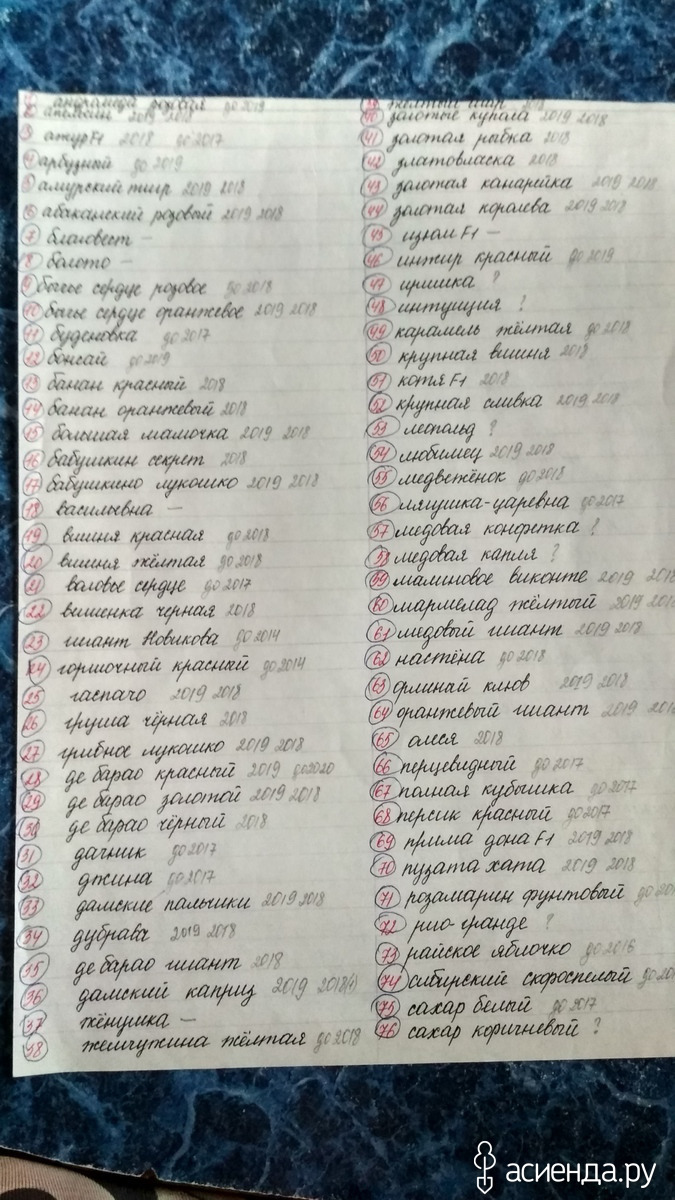 1 андромеда розовая до 2019
2 апельсин 2019 2018
3 ажур F1 2018 до 2017
4 арбузный до 2019
5 амурский тигр 2019 2018
6 абаканский розовый 2019 2018
7 благовест –
8 болото –
9 бычье сердце розовое до 2018
10 бычье сердце оранжевое 2019 2018
11 буденовка до 2017
12 бонсай до 2019
13 банан красный 2018
14 банан оранжевый 2018
15 большая мамочка 2019 2018
16 бабушкин секрет 2018
17 бабушкино лукошко 2019 2018
18 васильевна –
19 вишня красная до 2018
20 вишня жёлтая до 2018
21 воловье сердце до 2017
22 вишенка черная 2018
23 гигант Новикова до 2014
24 горшочный красный до 2014
25 гаспачо 2019 2018
26 груша чёрная 2018
27 грибное лукошко 2019 2018
28 де барао красный 2019 до 2020
29 де барао золотой 2019 2018
30 де барао чёрный 2018
31 дачник до 2017
32 джина до 2017
33 дамские пальчики 2019 2018
34 дубрава 2019 2018
35 де барао гигант 2018
36 дамский каприз 2019 2018(4)
37 жёнушка –
38 жемчужина жёлтая до 2018
39 жёлтый шар 2018
40 золотые купола 2019 2018
41 золотая рыбка 2018
42 златовласка 2018
43 золотая канарейка 2019 2018
44 золотая королева 2019 2018
45 изюм F1 –
46 инжир красный до 2019
47 иришка ?
48 интуиция ?
49 карамель жёлтая до 2018
50 крупная вишня 2018
51 котя F1 2018
52 крупная сливка 2019 2018
53 леопольд ?
54 любимец 2019 2018
55 медвежёнок до 2018
56 лягушка-царевна до 2017
57 медовая конфетка ?
58 медовая капля ?
59 малиновое виконте 2019 2018
60 мармелад жёлтый 2019 2018
61 медовый гигант 2019 2018
62 настёна до 2018
63 орлиный клюв 2019 2018
64 оранжевый гигант 2019 2018
65 олеся 2018
66 перцевидный до 2017
67 полная кубышка до 2017
68 персик красный до 2017
69 прима дона F1 2019 2018
70 пузата хата 2019 2018
71 розамарин фунтовый до
72 рио-гранде ?
73 райское яблочко до 2016
74 сибирский скороспелый до
75 сахар белый до 2017
76 сахар коричневый ?
асиенда.ру